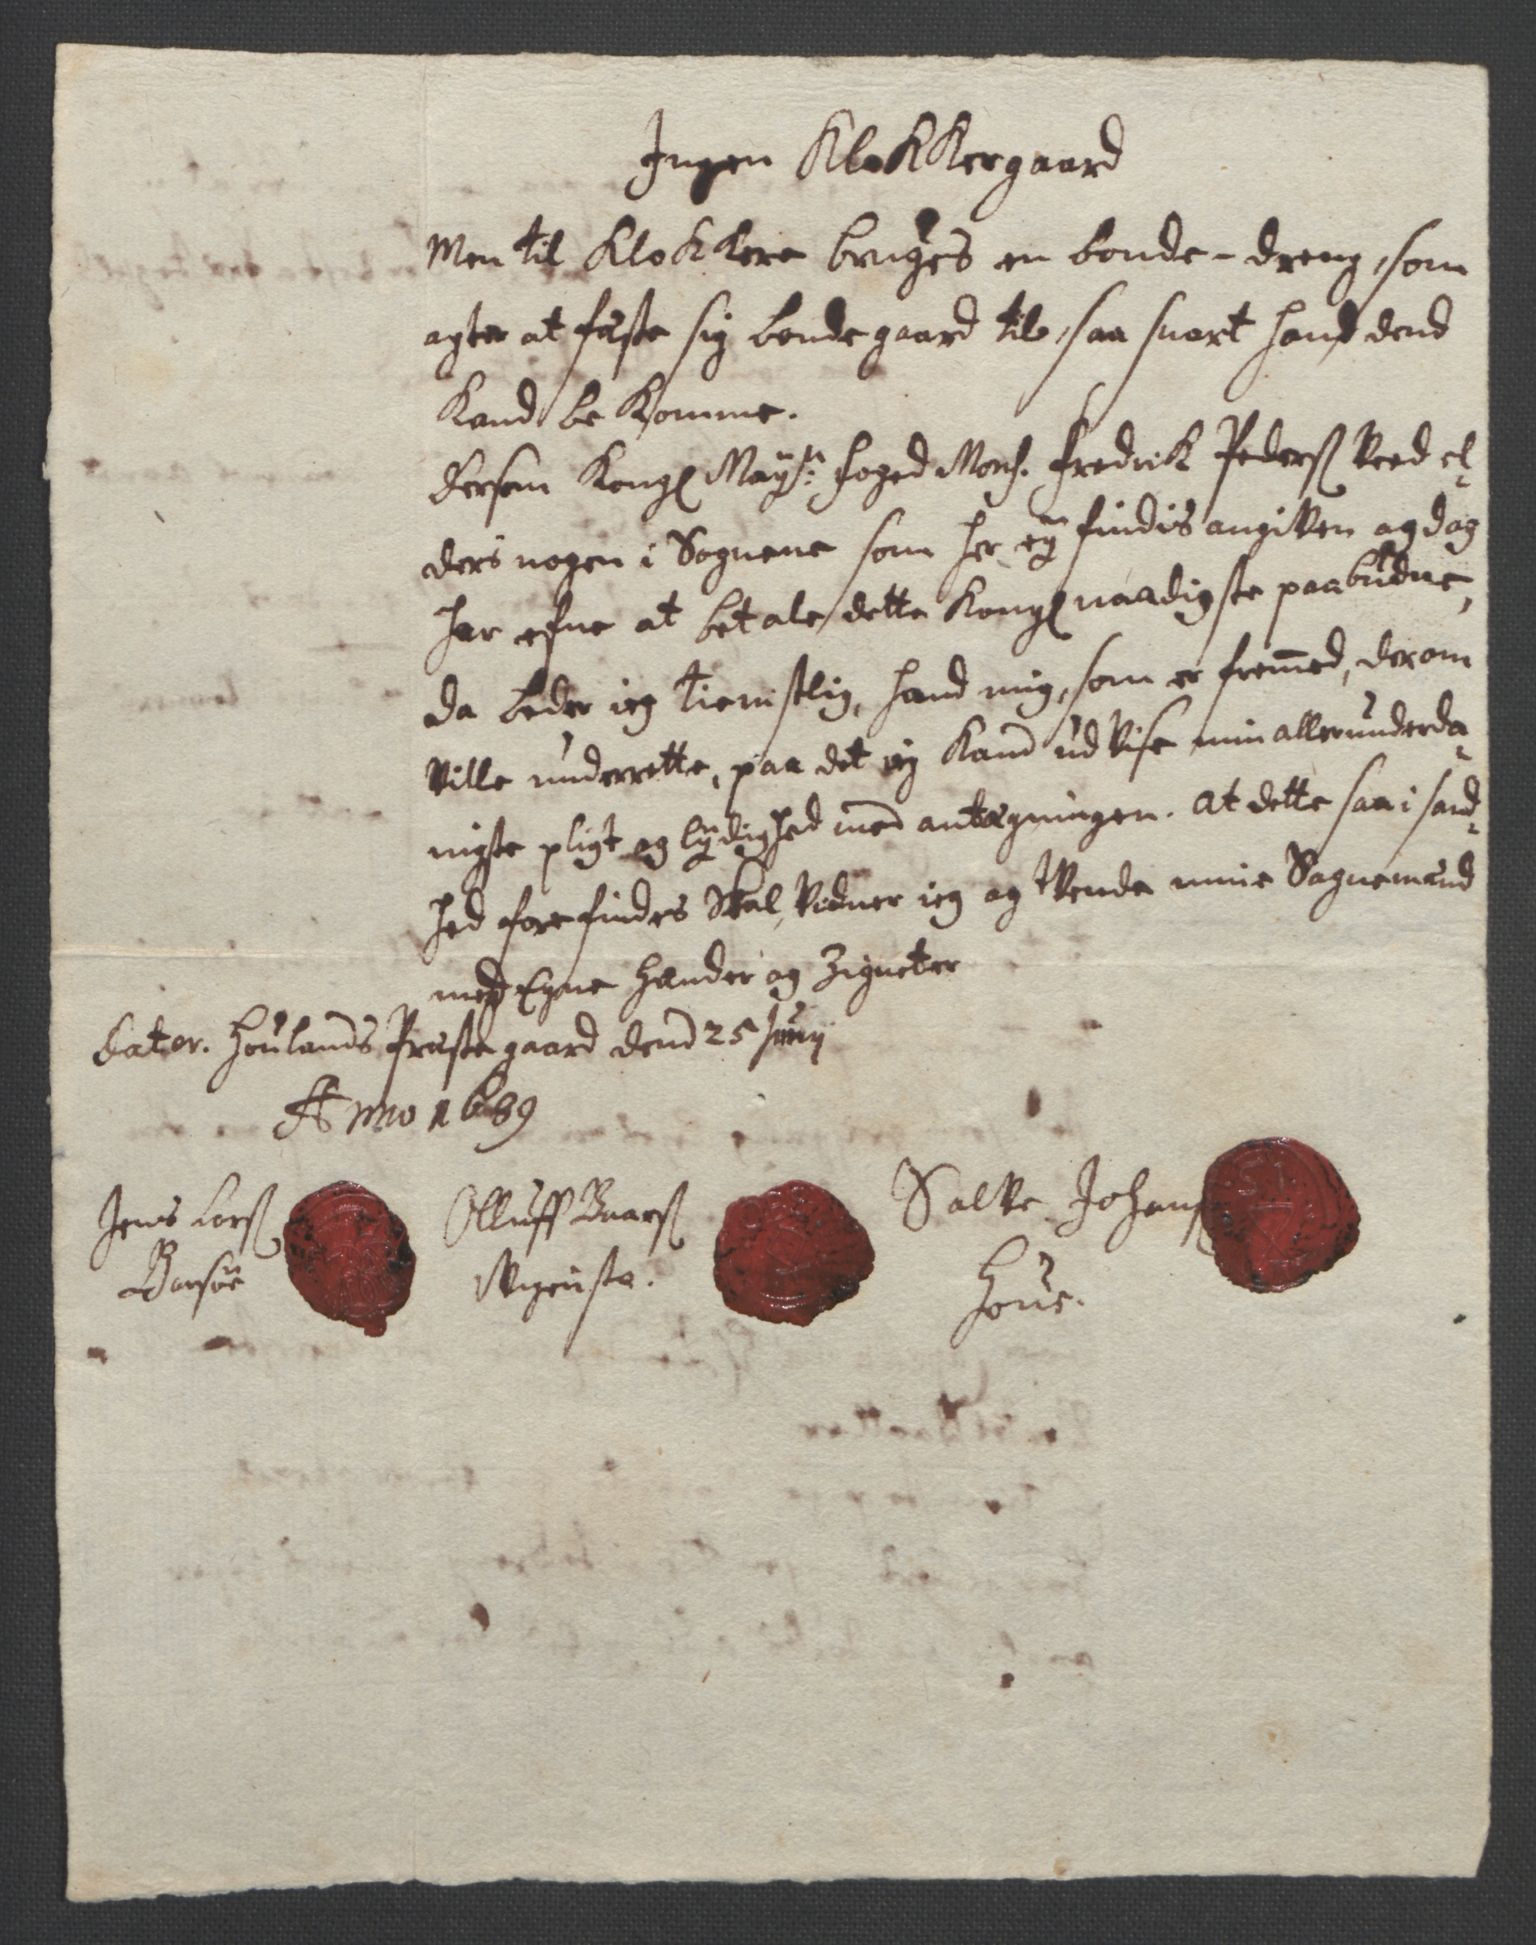 Ingen KloKKergaard
Men til KloKKere bruges en bonde-dreng, som
agter at fæste sig bondegaard til, saa snart hand dend
Kand be Komme.
dersom Kongl Mayst: foged Mons. Fredrik Pederß Veed el,
ders nogen i Sognene som her eÿ findis angiVen og dog
har efne at betale dette Kongl naadigste paabudne,
da beder ieg tienistlig, hand mig, som er fremed, derom
Ville underrette, paa det ieg Kand udVise min allerunderda,
nigste pligt og lÿdighed med antegningen. At dette saa i sand,
hed forefindes Skal, Vidner ieg og tVende mine Sognemend
med Egne Hænder og Zigneter
Dater. Houlands Præstegaard dend 25 Junij
Anno 1689
Jens Lorß
Olluff Baarß
SalVe Johanß
Houe.